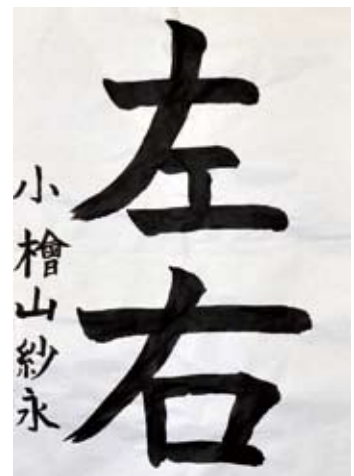 左右
小檜山紗永